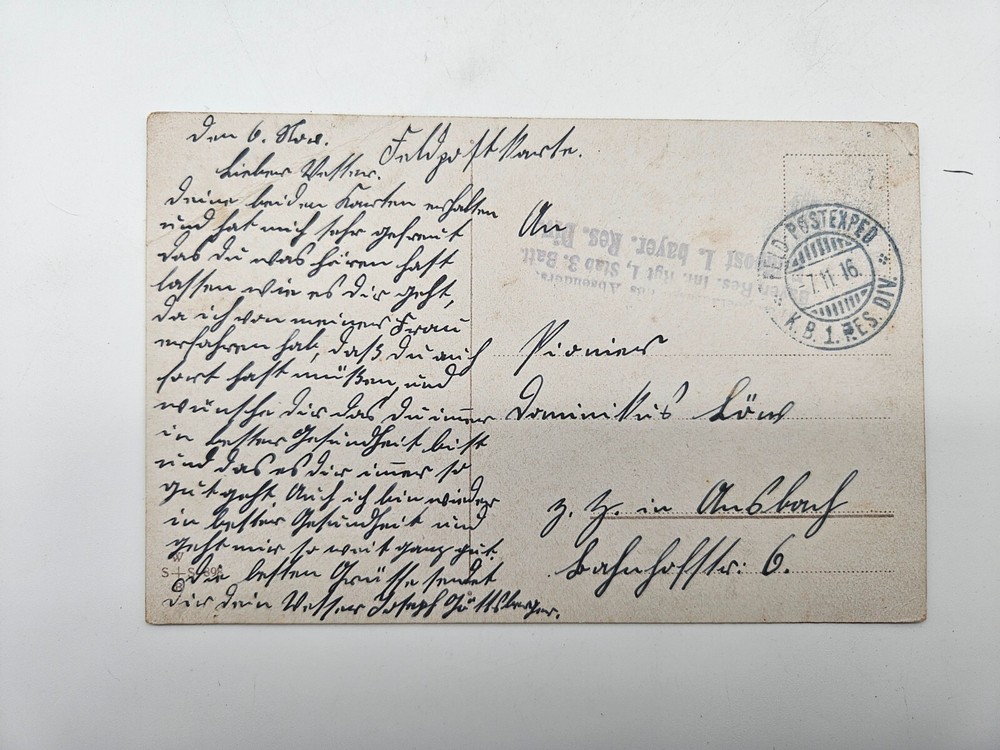 Den 6. Nov.
Feldpostkarte.
Lieber Vetter.
Deine beiden Karten erhalten
und hat mich sehr gefreut
das du was hören hast
lassen wie es dir geht,
da ich von meiner Frau
erfahren hab, daß du auch
fort hast müßen, und
wünsche dir das du immer
in bester Gesundheit bist
und das es dir immer so
gut geht Auch ich bin wieder
in bester Gesundheit und
geht mir so weit ganz gut.
Die besten Grüsse sendet
dir dein Vetter Joseph
An
Pionier
Dominikus Löw
z. Z. in Ansbach
Bahnhofstr: 6.
FELD-POSTEXPED
-7.11.16.
K.B. 1. RES. DIV.
des Absenders:
Bayer. Res. Inf. Rgt 1, Stab 3. Batt.
post 1. bayer. Res. Div.
W
S+S 898